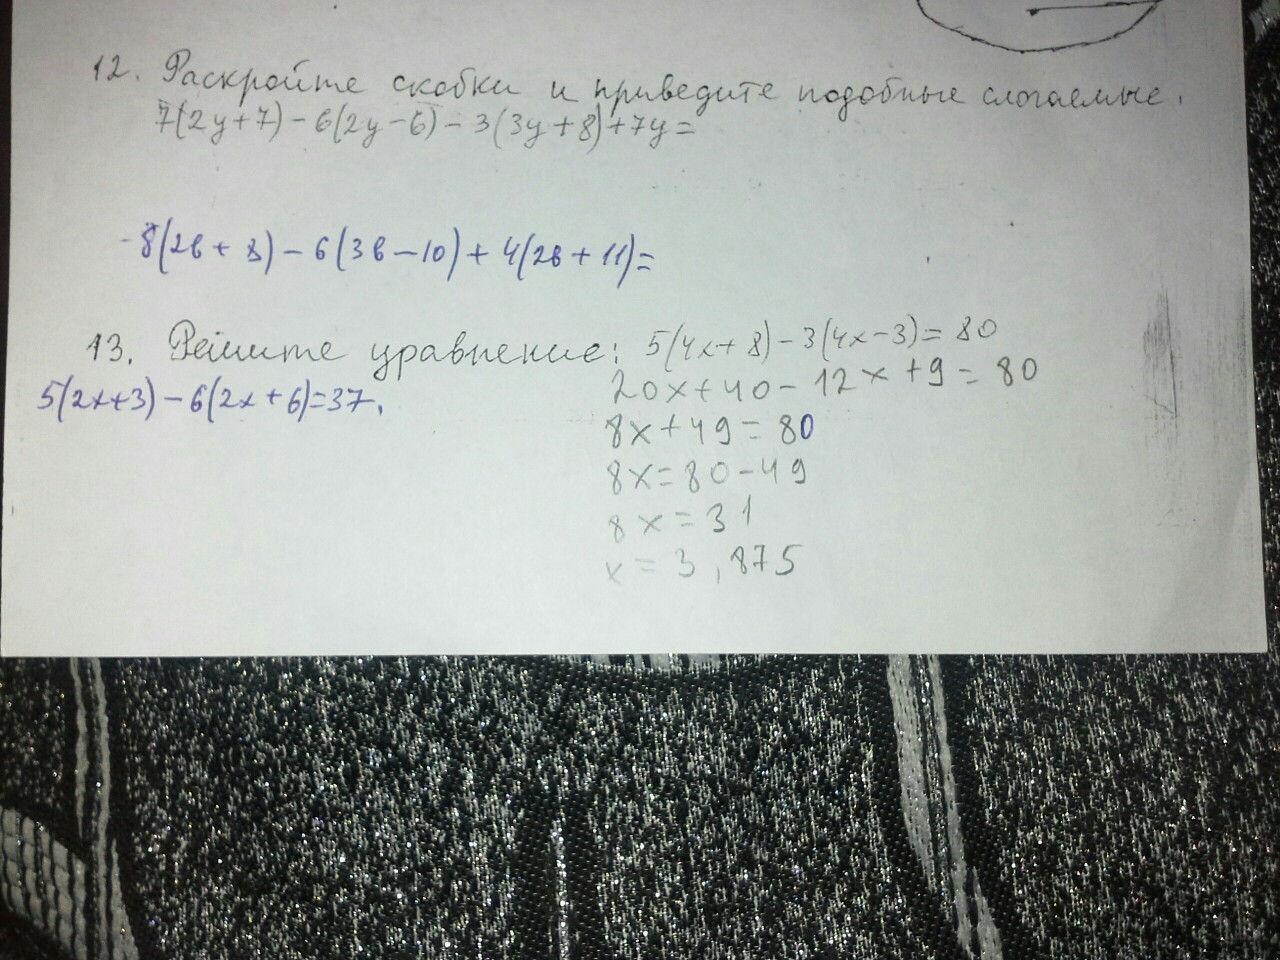 12. Раскройте скобки и приведите подобные слагаемые.
7(2у+7)-6(2у-6)-3(3у+8)+7у=
-8(2в+8)-6(3в-10)+4(2в+11)=
13. Решите уравнение: 5(4х+8)-3(4х-3)=80
5(2х+3)-6(2х+6)=37.
20х+40-12х+9=80
8х+49=80
8х=80-49
8х=31
х=3,875